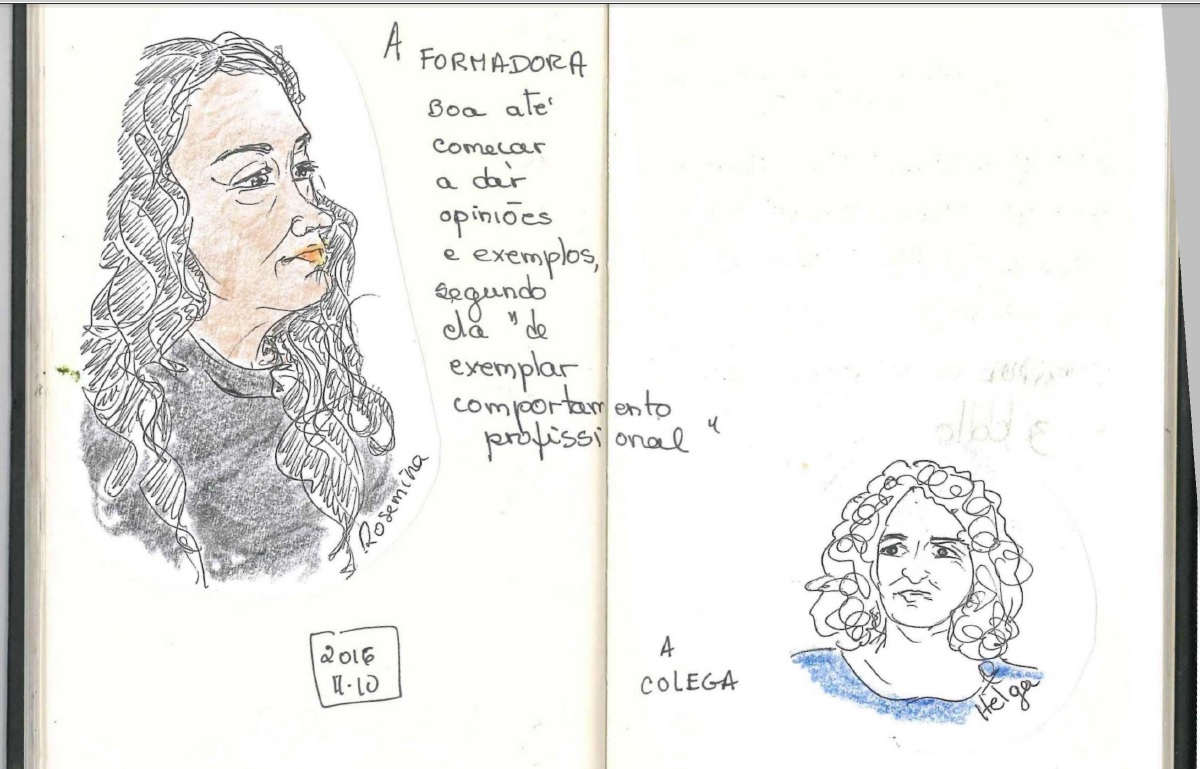 A
FORMADORA
Boa até
começar
a dar
opiniões
e exemplos,
segundo
ela "de
exemplar
comportamento
profissional"
Rosemina
A
COLEGA
Helga